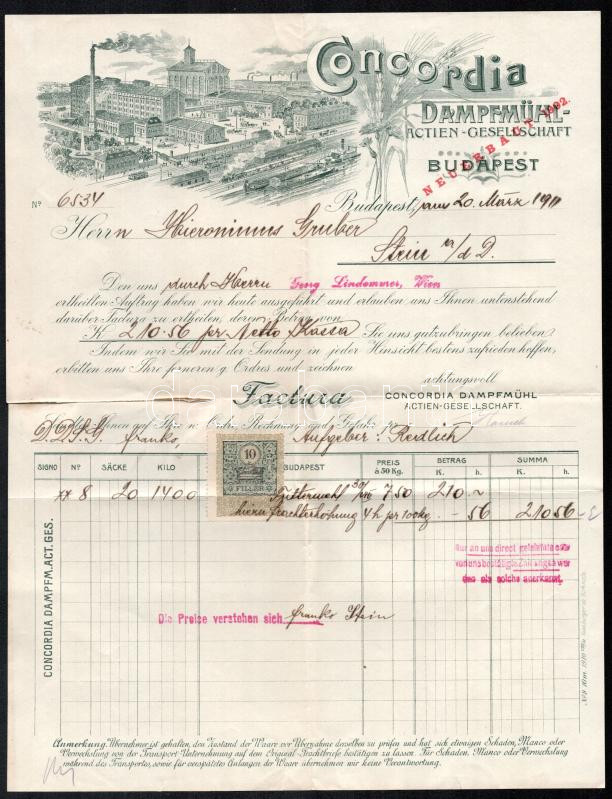 Concordia
DAMPFMÜHL-
ACTIEN-GESELLSCHAFT
NEUERBAUT 1902.
BUDAPEST
Nº 6534
Budapest, am 20. März 1911
Herrn Hieronimus Gruber
Stein a/d D.
Den uns durch Herrn Georg Lindommer, Wien
ertheilten Auftrag haben wir heute ausgeführt und erlauben uns Ihnen untenstehend
darüber Factura zu ertheilen, deren Betrag von
K 210.56 per Netto Kassa Sie uns gutzubringen belieben.
Indem wir Sie mit der Sendung in jeder Hinsicht bestens zufrieden hoffen,
erbitten uns Ihre ferneren g. Ordres und zeichnen
achtungsvoll
Factura
CONCORDIA DAMPFMÜHL
ACTIEN-GESELLSCHAFT.
D.D.S.G. franko, Aufgeber: Redlich
SIGNO Nº SÄCKE KILO BUDAPEST PREIS à 50 Kg. BETRAG K. h. SUMMA K. h.
8 20 1400 Futtermehl 7.50 210.~
hiezu Frachterhöhung 4 h per 100 kg. -56 210 56
10
FILLÉR
Nur an uns direct geleistete oder
von uns bestätigte Zahlungen wer
den als solche anerkannt.
Die Preise verstehen sich franko Stein
CONCORDIA DAMPFM. ACT. GES.
Anmerkung. Übernehmer ist gehalten, den Zustand der Waare vor Übernahme derselben zu prüfen und hat sich etwaigen Schaden, Manco oder
Verwechslung von der Transport-Unternehmung auf dem Original-Frachtbriefe bestätigen zu lassen. Für Schaden, Manco oder Verwechslung
während des Transportes, sowie für verspätetes Anlangen der Waare übernehmen wir keine Verantwortung.